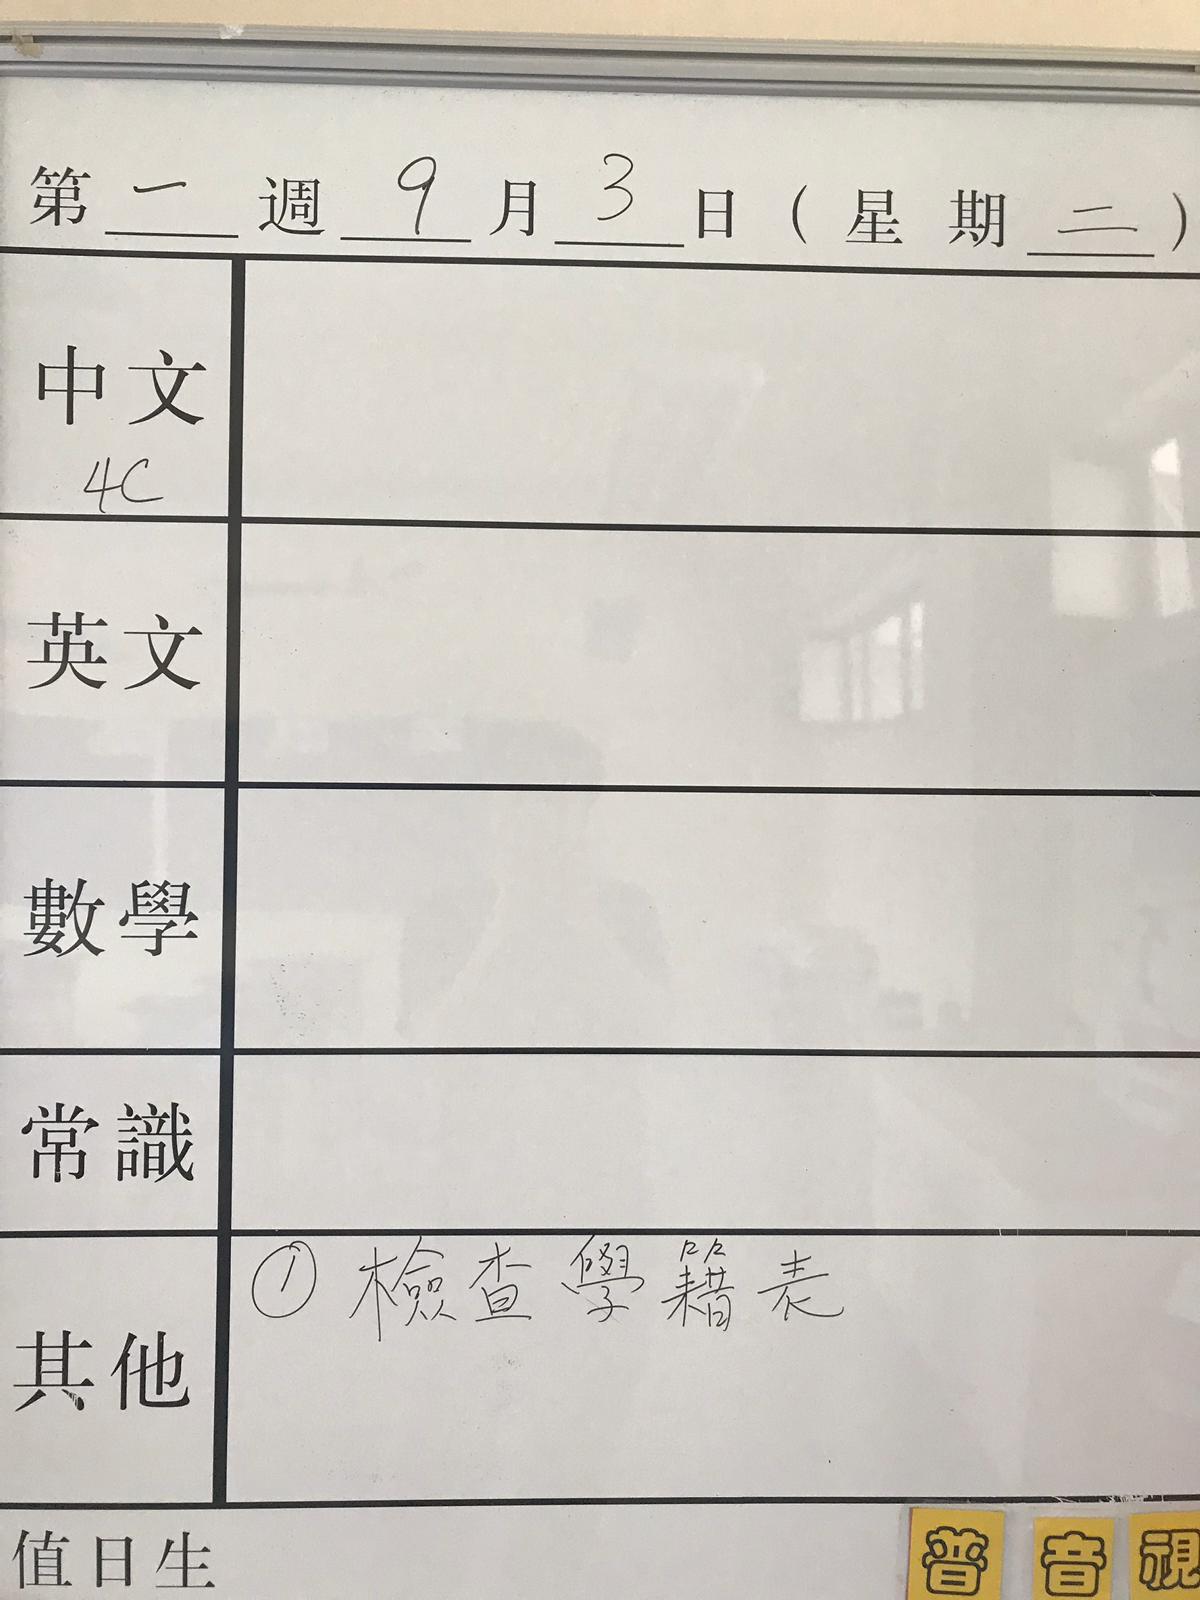 第 一 週 9 月 3 日 ( 星 期 二 )
中文
4C
英文
數學
常識
其他
① 檢查學籍表
值日生
普 音 視